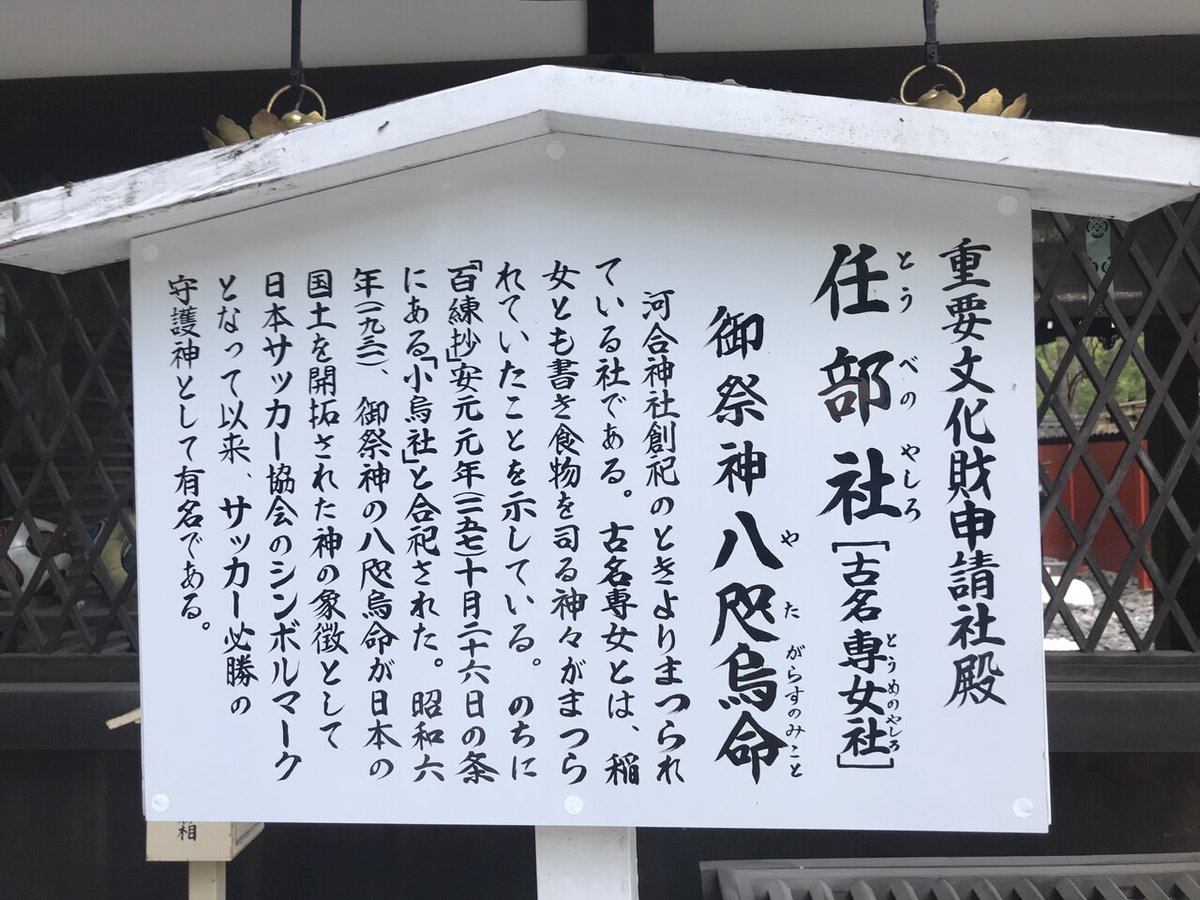 重要文化財申請社殿
任部社[古名専女社]
とうべのやしろ
とうめのやしろ
御祭神八咫烏命
やたがらすのみこと
河合神社創祀のときよりまつられ
ている社である。古名専女とは、稲
女とも書き食物を司る神々がまつら
れていたことを示している。のちに
「百練抄」安元元年(一一五七)十月二十六日の条
にある「小烏社」と合祀された。昭和六
年(一九三一)、御祭神の八咫烏命が日本の
国土を開拓された神の象徴として
日本サッカー協会のシンボルマーク
となって以来、サッカー必勝の
守護神として有名である。
箱